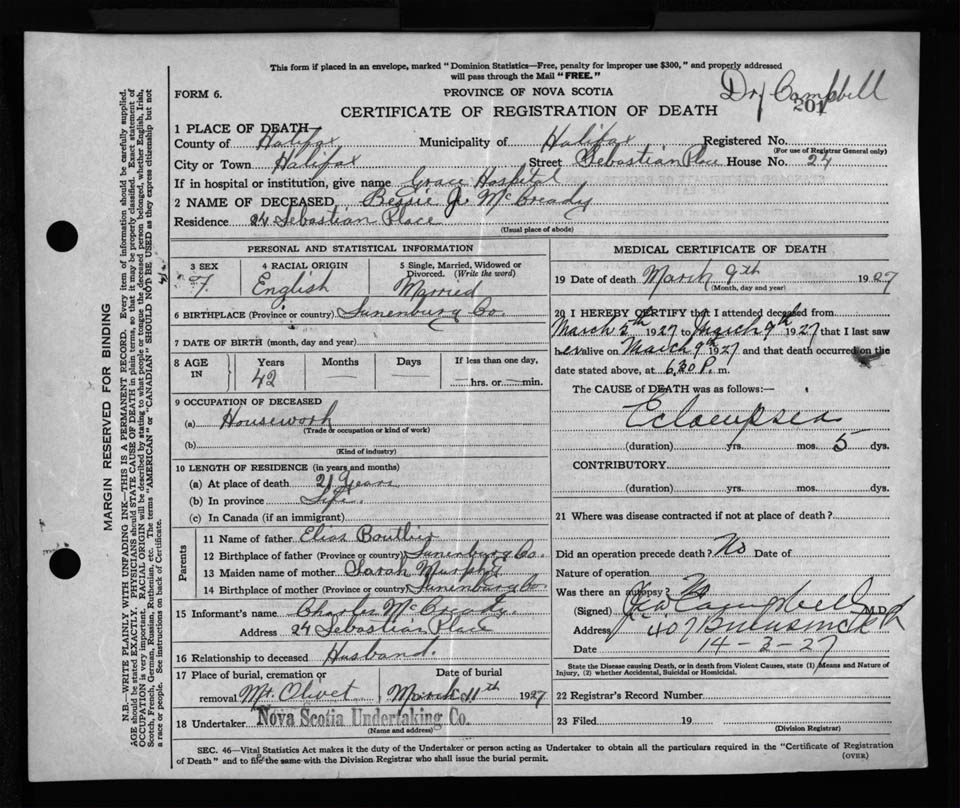 This form if placed in an envelope, marked "Dominion Statistics—Free, penalty for improper use $300," and properly addressed
will pass through the Mail "FREE."
Dr Campbell
FORM 6.
PROVINCE OF NOVA SCOTIA
201
CERTIFICATE OF REGISTRATION OF DEATH
1 PLACE OF DEATH
County of Halifax Municipality of Halifax Registered No.
(For use of Registrar General only)
City or Town Halifax Street Sebastian Place House No. 24
If in hospital or institution, give name Grace Hospital
2 NAME OF DECEASED Bessie J. McCready
Residence 24 Sebastian Place
(Usual place of abode)
PERSONAL AND STATISTICAL INFORMATION
3 SEX 4 RACIAL ORIGIN 5 Single, Married, Widowed or
Divorced. (Write the word)
F. English Married
6 BIRTHPLACE (Province or country) Lunenburg Co.
7 DATE OF BIRTH (month, day and year)
8 AGE IN Years Months Days If less than one day,
42 — — — hrs. or — min.
9 OCCUPATION OF DECEASED
(a) Housework
(Trade or occupation or kind of work)
(b)
(Kind of industry)
10 LENGTH OF RESIDENCE (in years and months)
(a) At place of death 21 Years
(b) In province Life.
(c) In Canada (if an immigrant)
Parents
11 Name of father Elias Boutlier
12 Birthplace of father (Province or country) Lunenburg Co.
13 Maiden name of mother Sarah Murphy
14 Birthplace of mother (Province or country) Lunenburg Co
15 Informant's name Charles McCready.
Address 24 Sebastian Place
16 Relationship to deceased Husband.
17 Place of burial, cremation or Date of burial
removal Mt. Olivet March 11th 1927
18 Undertaker Nova Scotia Undertaking Co.
(Name and address)
MEDICAL CERTIFICATE OF DEATH
19 Date of death March 9th 1927
(Month, day and year)
20 I HEREBY CERTIFY that I attended deceased from
March 5th 1927 to March 9th 1927 that I last saw
her alive on March 9th 1927 and that death occurred on the
date stated above, at 6.30 P. m.
The CAUSE of DEATH was as follows:—
Eclampsia
(duration) yrs. mos. 5 dys.
CONTRIBUTORY
(duration) yrs. mos. dys.
21 Where was disease contracted if not at place of death?
Did an operation precede death? No Date of
Nature of operation
Was there an autopsy? No
(Signed) Campbell M.D
Address 407
Date 14-3-27
State the Disease causing Death, or in death from Violent Causes, state (1) Means and Nature of
Injury, (2) whether Accidental, Suicidal or Homicidal.
22 Registrar's Record Number
23 Filed 19
(Division Registrar)
SEC. 46—Vital Statistics Act makes it the duty of the Undertaker or person acting as Undertaker to obtain all the particulars required in the "Certificate of Registration
of Death" and to file the same with the Division Registrar who shall issue the burial permit.
(OVER)
MARGIN RESERVED FOR BINDING
N.B.—WRITE PLAINLY WITH UNFADING INK—THIS IS A PERMANENT RECORD. Every item of information should be carefully supplied.
AGE should be stated EXACTLY. PHYSICIANS should STATE CAUSE OF DEATH in plain terms, so that it may be properly classified. Exact statement of
OCCUPATION is very important. RACIAL ORIGIN will be described by stating to what people or tongue the deceased person belonged, whether English, Irish,
Scotch, French, German, Russian, Ruthenian, etc. The terms "AMERICAN" or "CANADIAN" SHOULD NOT BE USED as they express citizenship but not
a race or people. See instructions on back of Certificate.